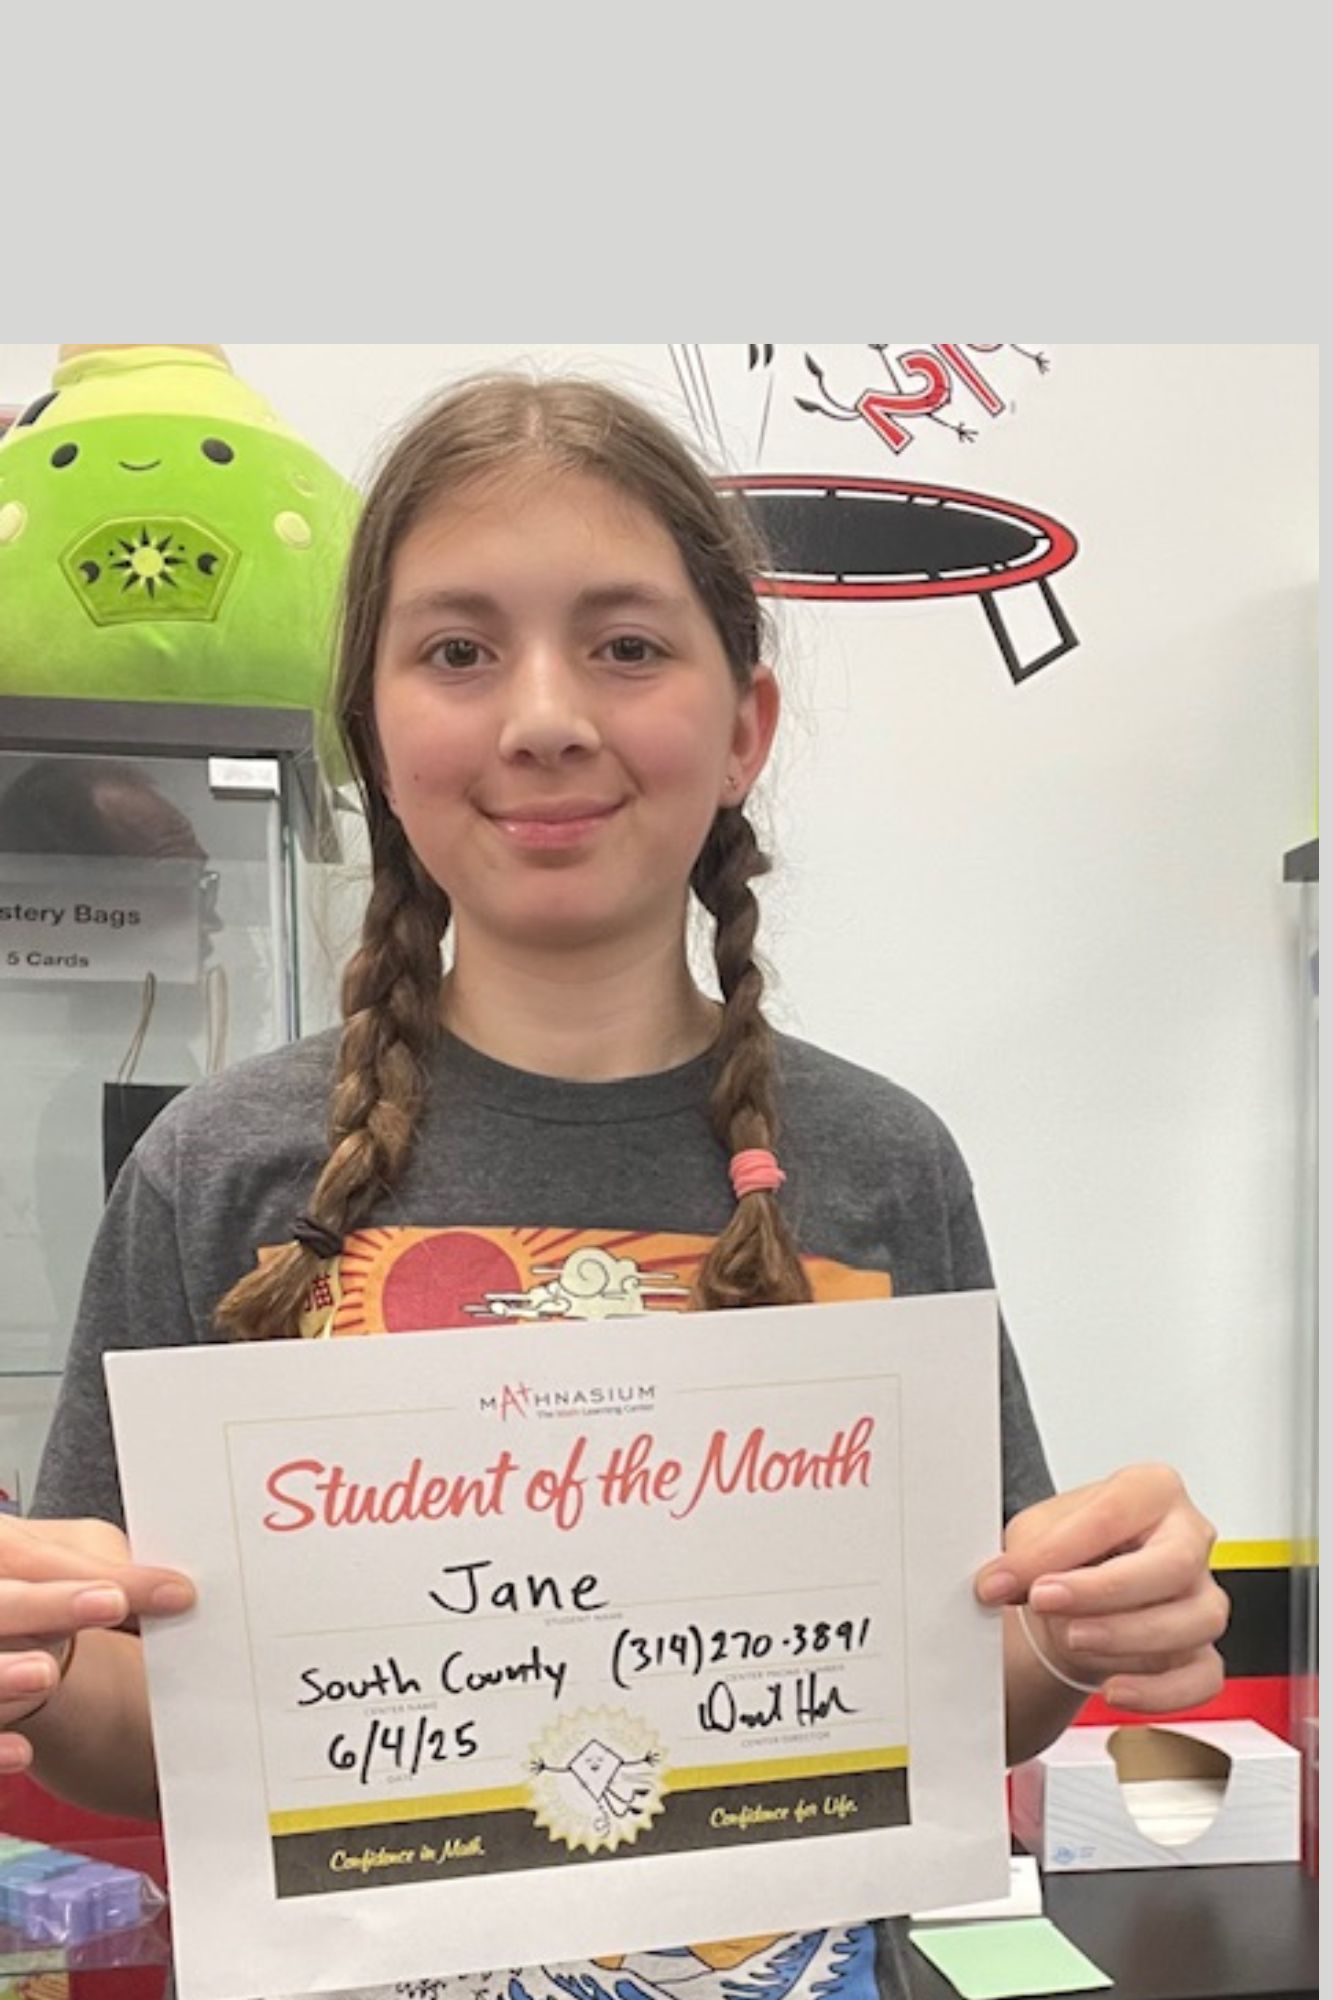 21
stery Bags
5 Cards
猫
MATHNASIUM
The Math Learning Center
Student of the Month
Jane
STUDENT NAME
South County (314)270-3891
CENTER NAME CENTER PHONE NUMBER
6/4/25
DATE CENTER DIRECTOR
Confidence in Math. Confidence for Life.